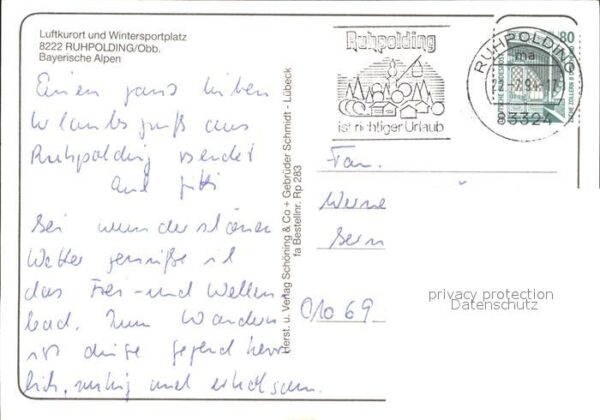 Luftkurort und Wintersportplatz
8222 RUHPOLDING/Obb.
Bayerische Alpen
Einen ganz lieben
Urlaubsgruß aus
Ruhpolding sendet
Bei wunderschönem
Wetter genieße ich
das Frei- und Wellen-
bad. Zum Wandern
ist diese Gegend herr-
lich, ruhig und erholsam.
Herst. u. Verlag Schöning & Co + Gebrüder Schmidt - Lübeck
fa Bestellnr. Rp 283
Ruhpolding
ist richtiger Urlaub
RUHPOLDING
ma
83324
80
DEUTSCHE BUNDESPOST
Fam.
Werne
Bern
01069
privacy protection
Datenschutz